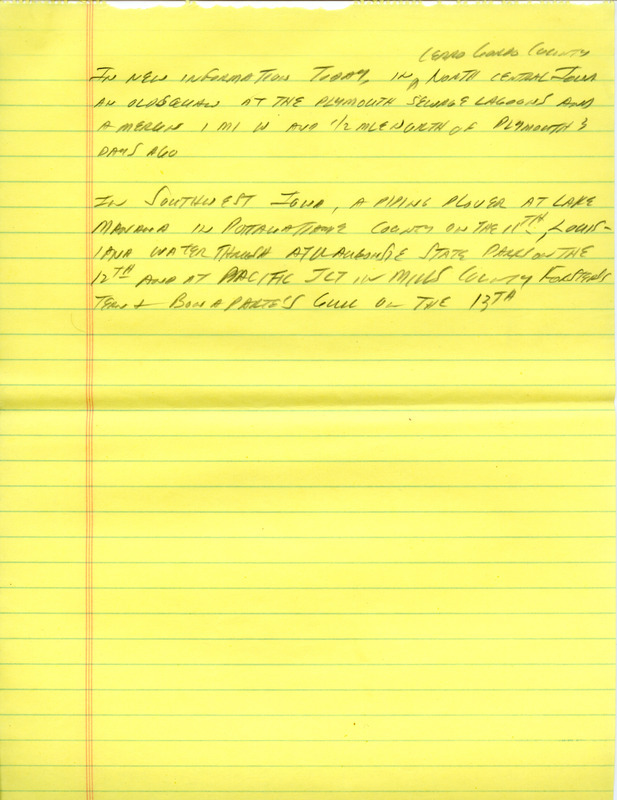 Cerro Gordo County
In new information today, in ^ North Central Iowa
an oldsquaw at the Plymouth Sewage Lagoons and
a merlin 1 mi W and 1/2 mle north of Plymouth 3
days ago
In Southwest Iowa, a piping plover at Lake
Manawa in Pottawattamie County on the 11th, Louis-
iana waterthrush at Waubonsie State Park on the
12th and at Pacific Jct in Mills County Forster's
Tern + Bonaparte's Gull on the 13th